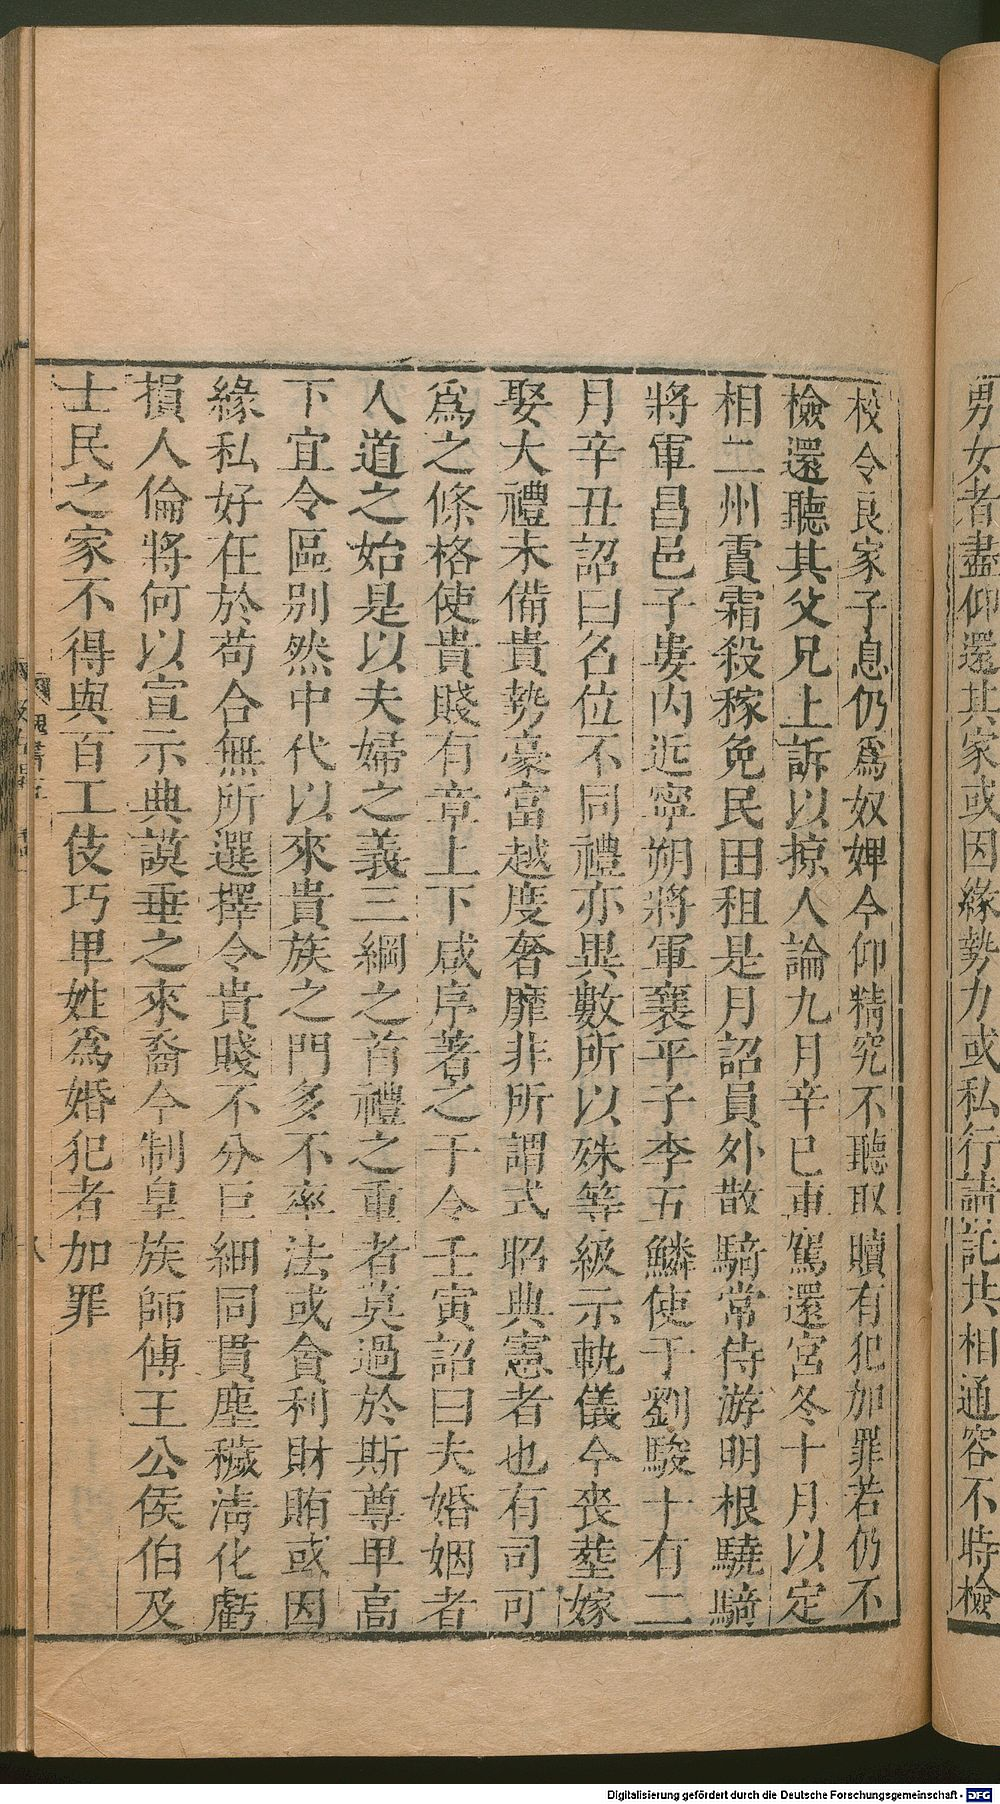 男女者盡仰還其家或因緣勢力或私行請託共相通容不時檢
校令良家子息仍爲奴婢今仰精究不聽取贖有犯加罪若仍不
檢還聽其父兄上訴以掠人論九月辛巳車駕還宮冬十月以定
相二州霣霜殺稼免民田租是月詔員外散騎常侍游明根驍騎
將軍昌邑子婁內近寧朔將軍襄平子李五鱗使于劉駿十有二
月辛丑詔曰名位不同禮亦異數所以殊等級示軌儀今喪塟嫁
娶大禮未備貴勢豪富越度奢靡非所謂式昭典憲者也有司可
爲之條格使貴賤有章上下咸序著之于令壬寅詔曰夫婚姻者
人道之始是以夫婦之義三綱之首禮之重者莫過於斯尊卑高
下宜令區別然中代以來貴族之門多不率法或貪利財賄或因
緣私好在於苟合無所選擇令貴賤不分巨細同貫塵穢淸化虧
損人倫將何以宣示典謨垂之來裔今制皇族師傅王公侯伯及
士民之家不得與百工伎巧卑姓爲婚犯者加罪
魏書五
八
Digitalisierung gefördert durch die Deutsche Forschungsgemeinschaft - DFG